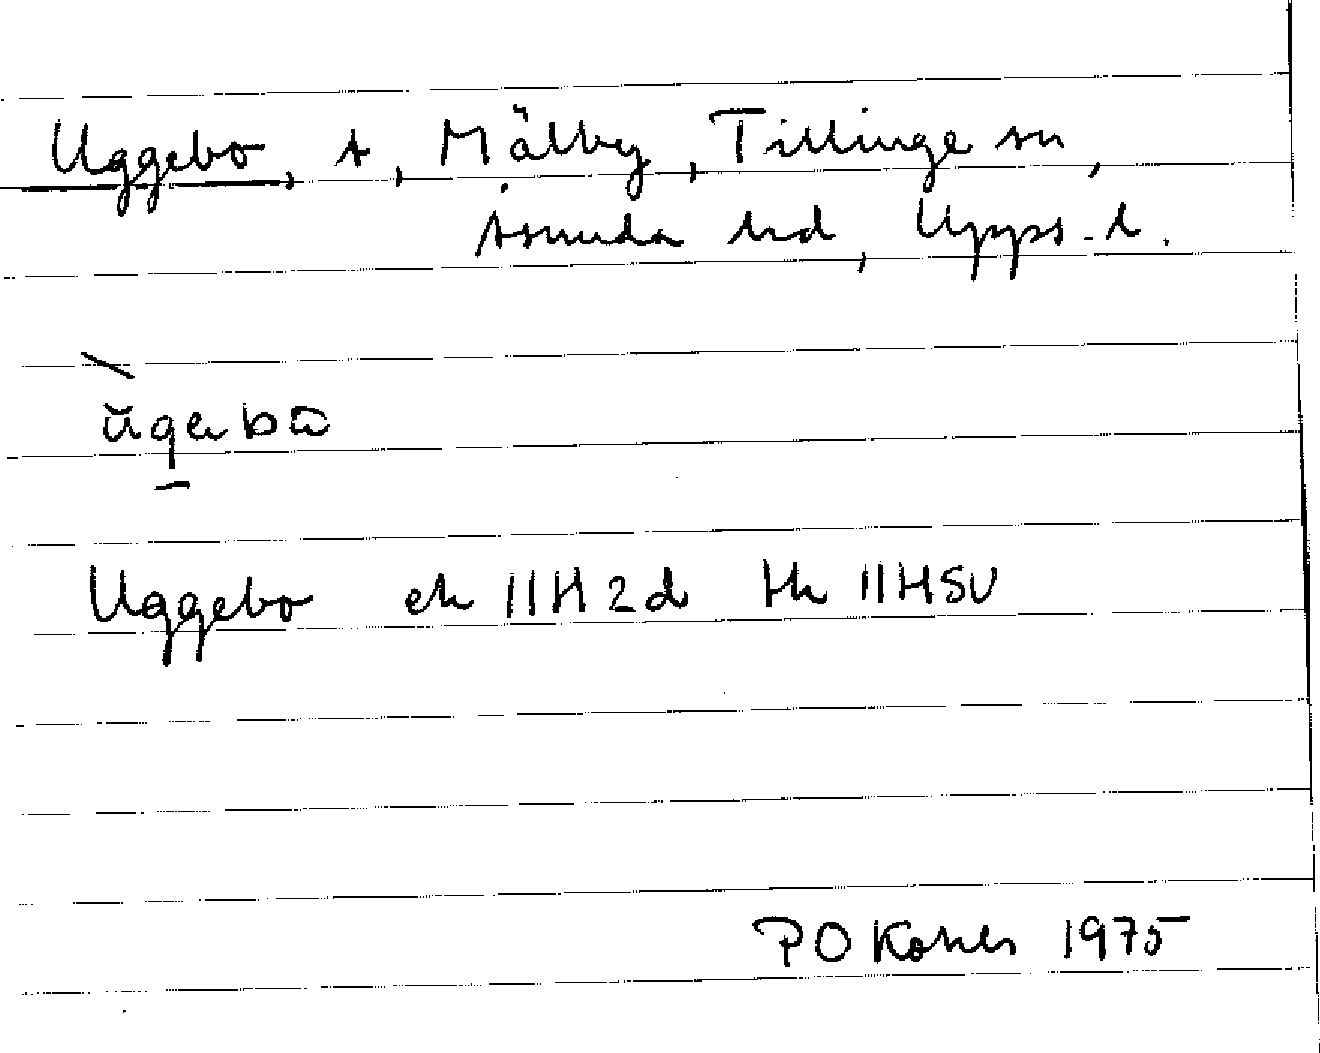 Uggebo, t, Mälby, Tillinge sn,
Åsunda hd, Upps. l.
Uggebo ek 11H2d Hk 11HSV
1975